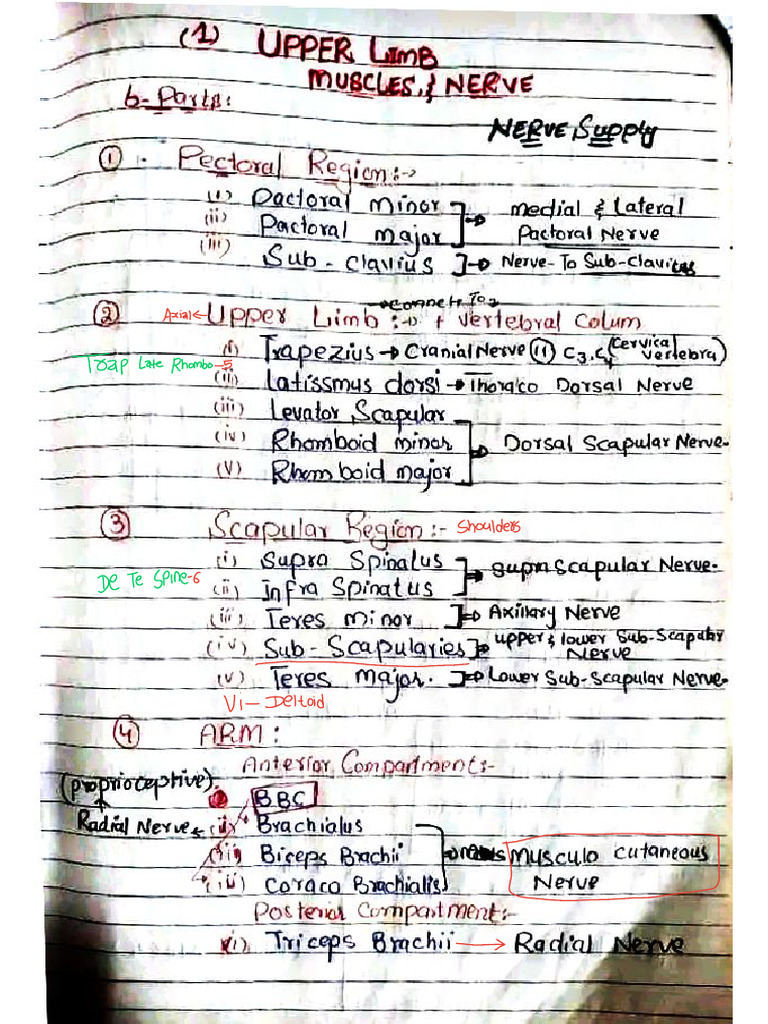 (1) UPPER LIMB
MUSCLES & NERVE
6-Parts:
NERVE Supply
① Pectoral Region:-
(i) Pactoral minor
(ii) Pactoral major
medial & Lateral
Pactoral Nerve
(iii) Sub-clavius → Nerve-To Sub-clavites
connect To
② Axial ← Upper Limb :- + vertebral Colum
(i) Trapezius → Cranial Nerve (11) C3,C4 (Cervical vertebra)
Trap Late Rhombo-5
(ii) Latissmus dorsi → Thoraco Dorsal Nerve
(iii) Levator Scapular
(iv) Rhomboid minor → Dorsal Scapular Nerve-
(v) Rhomboid major
③ Scapular Region:- Shoulders
(i) Supra Spinatus
De Te Spine-6
(ii) infra Spinatus
→ supra Scapular Nerve-
(iii) Teres minor → Axillary Nerve
(iv) Sub-Scapularies → upper & lower Sub-Scapular Nerve
(v) Teres major. → Lower Sub-Scapular Nerve-
VI- Deltoid
④ ARM:
Anterior Compartment:-
(proprioceptive)
BBC
Radial Nerve ← (i) Brachialus
(ii) Biceps Brachii → Musculo cutaneous
(iii) Coraco Brachialis Nerve
Posterior Compartment:-
(i) Triceps Brachii → Radial Nerve